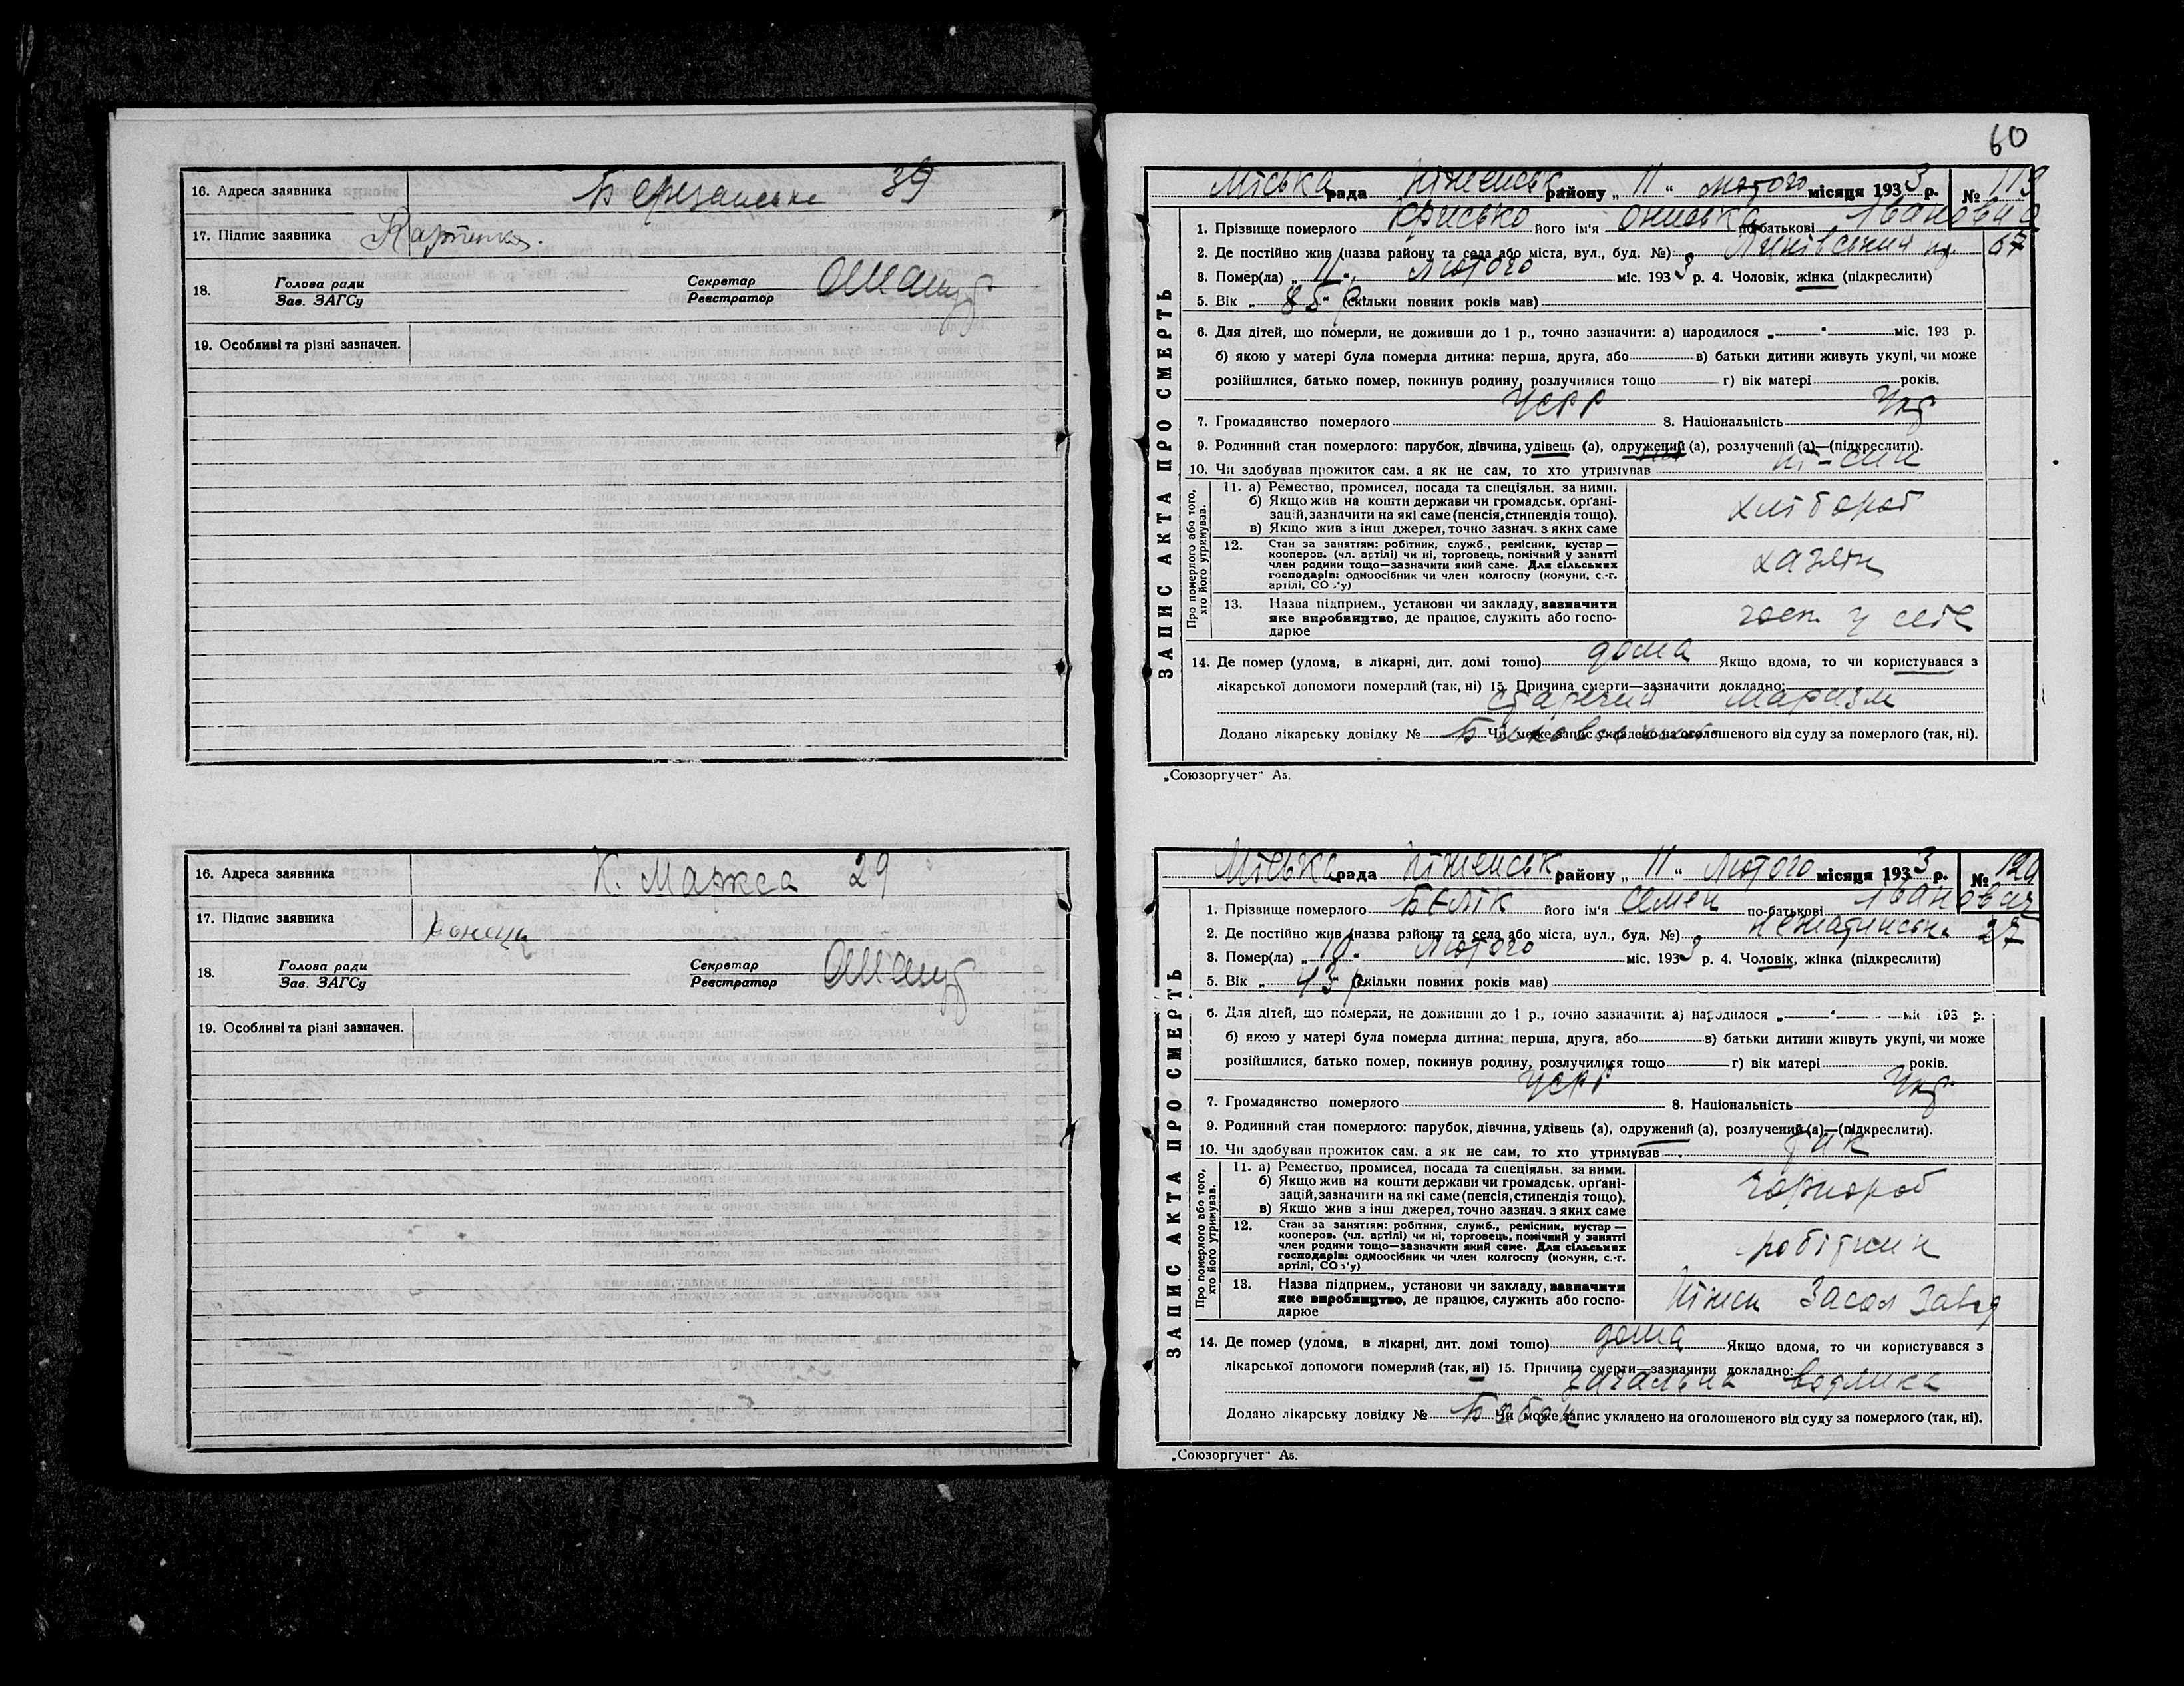 16. Адреса заявника
39
17. Підпис заявника
18. Голова ради
Зав. ЗАГСу
Секретар
Реєстратор
19. Особливі та різні зазначен.
16. Адреса заявника К. Маркса 29
17. Підпис заявника
18. Голова ради
Зав. ЗАГСу
Секретар
Реєстратор
19. Особливі та різні зазначен.
60
ЗАПИС АКТА ПРО СМЕРТЬ
Міська рада Ніженськ району „ 11 “ лютого місяця 1933 р. № 119
1. Прізвище померлого Крисько його ім'я Ониська по-батькові Івановна
2. Де постійно жив (назва району та села або міста, вул., буд. №) 67
3. Помер(ла) „ 11 “ Лютого міс. 1933 р. 4. Чоловік, жінка (підкреслити)
5. Вік „ 85 р (скільки повних років мав)
6. Для дітей, що померли, не доживши до 1 р., точно зазначити: а) народилося „ “ міс. 193 р.
б) якою у матері була померла дитина: перша, друга, або в) батьки дитини живуть укупі, чи може
розійшлися, батько помер, покинув родину, розлучилися тощо г) вік матері років.
7. Громадянство померлого УСРР 8. Національність Укр
9. Родинний стан померлого: парубок, дівчина, удівець (а), одружений (а), розлучений (а)—(підкреслити).
10. Чи здобував прожиток сам, а як не сам, то хто утримував ні – син
Про померлого або того, хто його утримував.
11. а) Ремество, промисел, посада та спеціяльн. за ними.
б) Якщо жив на кошти держави чи громадськ. орґані-
зацій, зазначити на які саме (пенсія, стипендія тощо).
в) Якщо жив з інш джерел, точно зазнач. з яких саме
хлібороб
12. Стан за заняттям: робітник, служб., ремісник, кустар —
кооперов. (чл. артілі) чи ні, торговець, помічний у занятті
член родини тощо—зазначити який саме. Для сільських
господарів: одноосібник чи член колгоспу (комуни, с.-г.
артілі, СОЗ'у)
хазяїн
13. Назва підприєм., установи чи закладу, зазначити
яке виробництво, де працює, служить або госпо-
дарює
госп у себе
14. Де помер (удома, в лікарні, дит. домі тощо) дома Якщо вдома, то чи користувався з
лікарської допомоги померлий (так, ні) 15. Причина смерти—зазначити докладно:
старечий маразм
Додано лікарську довідку № Чи може запис укладено на оголошеного від суду за померлого (так, ні).
„Союзоргучет“ А5.
ЗАПИС АКТА ПРО СМЕРТЬ
Міська рада Ніженськ району „ 11 “ Лютого місяця 1933 р. № 120
1. Прізвище померлого Бєлік його ім'я Семен по-батькові Іванович
2. Де постійно жив (назва району та села або міста, вул., буд. №) 27
3. Помер(ла) „ 10 “ Лютого міс. 1933 р. 4. Чоловік, жінка (підкреслити)
5. Вік „ 43 р (скільки повних років мав)
6. Для дітей, що померли, не доживши до 1 р., точно зазначити: а) народилося „ “ міс 193 р.
б) якою у матері була померла дитина: перша, друга, або в) батьки дитини живуть укупі, чи може
розійшлися, батько помер, покинув родину, розлучилися тощо г) вік матері років.
7. Громадянство померлого УСРР 8. Національність Укр
9. Родинний стан померлого: парубок, дівчина, удівець (а), одружений (а), розлучений (а)—(підкреслити).
10. Чи здобував прожиток сам, а як не сам, то хто утримував так
Про померлого або того, хто його утримував.
11. а) Ремество, промисел, посада та спеціяльн. за ними.
б) Якщо жив на кошти держави чи громадськ. орґані-
зацій, зазначити на які саме (пенсія, стипендія тощо).
в) Якщо жив з інш джерел, точно зазнач. з яких саме
чорнороб
12. Стан за заняттям: робітник, служб., ремісник, кустар —
кооперов. (чл. артілі) чи ні, торговець, помічний у занятті
член родини тощо—зазначити який саме. Для сільських
господарів: одноосібник чи член колгоспу (комуни, с.-г.
артілі, СОЗ'у)
робітник
13. Назва підприєм., установи чи закладу, зазначити
яке виробництво, де працює, служить або госпо-
дарює
Ніжен Засол Завод
14. Де помер (удома, в лікарні, дит. домі тощо) дома Якщо вдома, то чи користувався з
лікарської допомоги померлий (так, ні) 15. Причина смерти—зазначити докладно:
загальна водянка
Додано лікарську довідку № Чи може запис укладено на оголошеного від суду за померлого (так, ні).
„Союзоргучет“ А5.